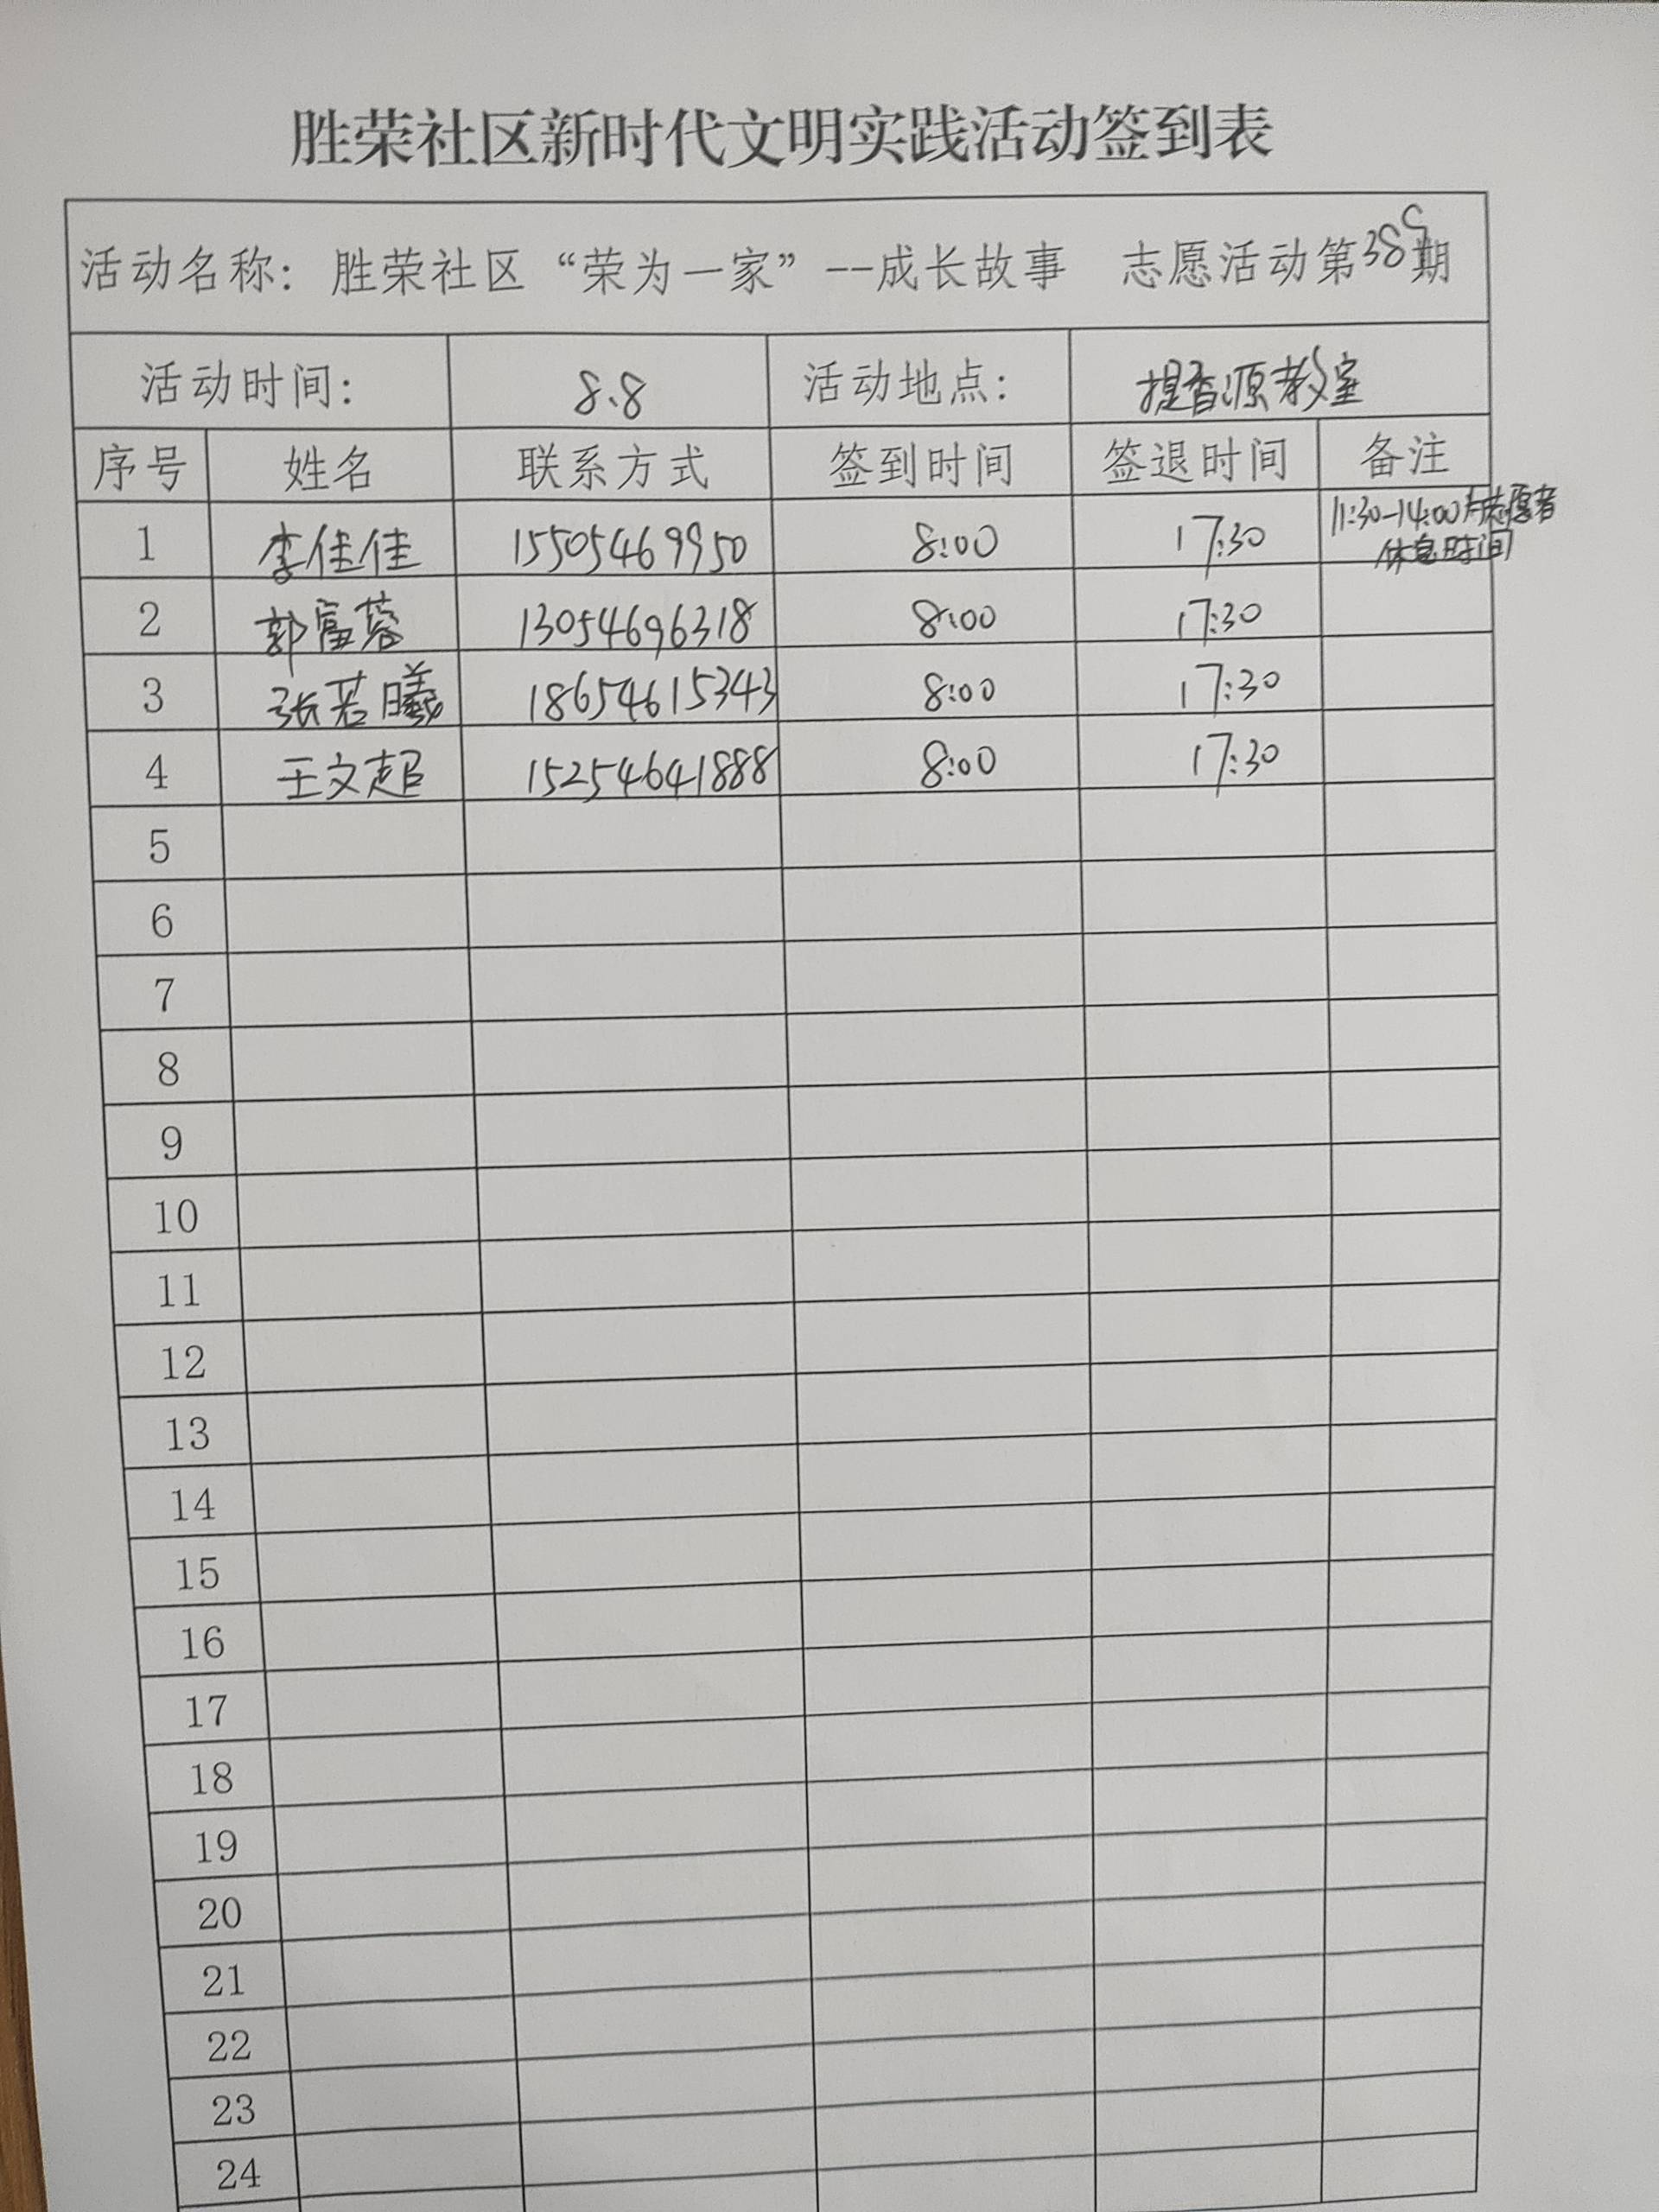 胜荣社区新时代文明实践活动签到表
活动名称：胜荣社区“荣为一家”--成长故事 志愿活动第389期
活动时间： 8.8 活动地点： 提香源教室
序号 姓名 联系方式 签到时间 签退时间 备注
1 李佳佳 15505469950 8:00 17:30 11:30-14:00为志愿者
休息时间
2 郭富蓉 13054696318 8:00 17:30
3 张若曦 18654615343 8:00 17:30
4 王文超 15254641888 8:00 17:30
5
6
7
8
9
10
11
12
13
14
15
16
17
18
19
20
21
22
23
24